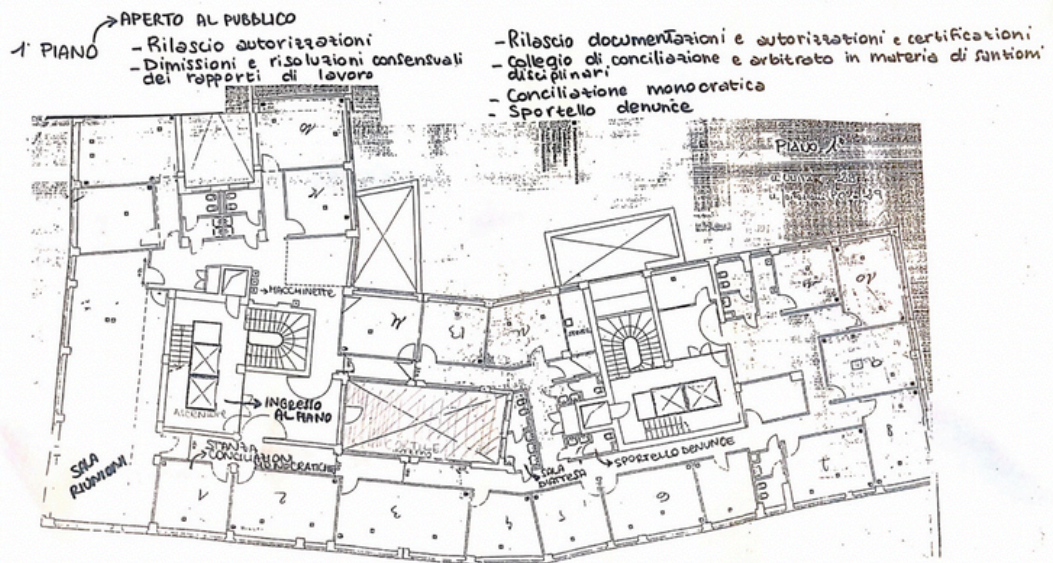 APERTO AL PUBBLICO
1° PIANO
- Rilascio autorizzazioni
- Dimissioni e risoluzioni consensuali
dei rapporti di lavoro
- Rilascio documentazioni e autorizzazioni e certificazioni
- Collegio di conciliazione e arbitrato in materia di
disciplinari
- Conciliazione monocratica
- Sportello denunce
PIANO 1°
10
12
MACCHINETTE
14
13
12
10
9
8
ASCENSORE
INGRESSO
AL PIANO
STANZA
CONCILIAZIONI
MONOCRATICHE
SALA
RIUNIONI
SALA
D'ATTESA
SPORTELLO DENUNCE
1
2
3
4
5
6
7